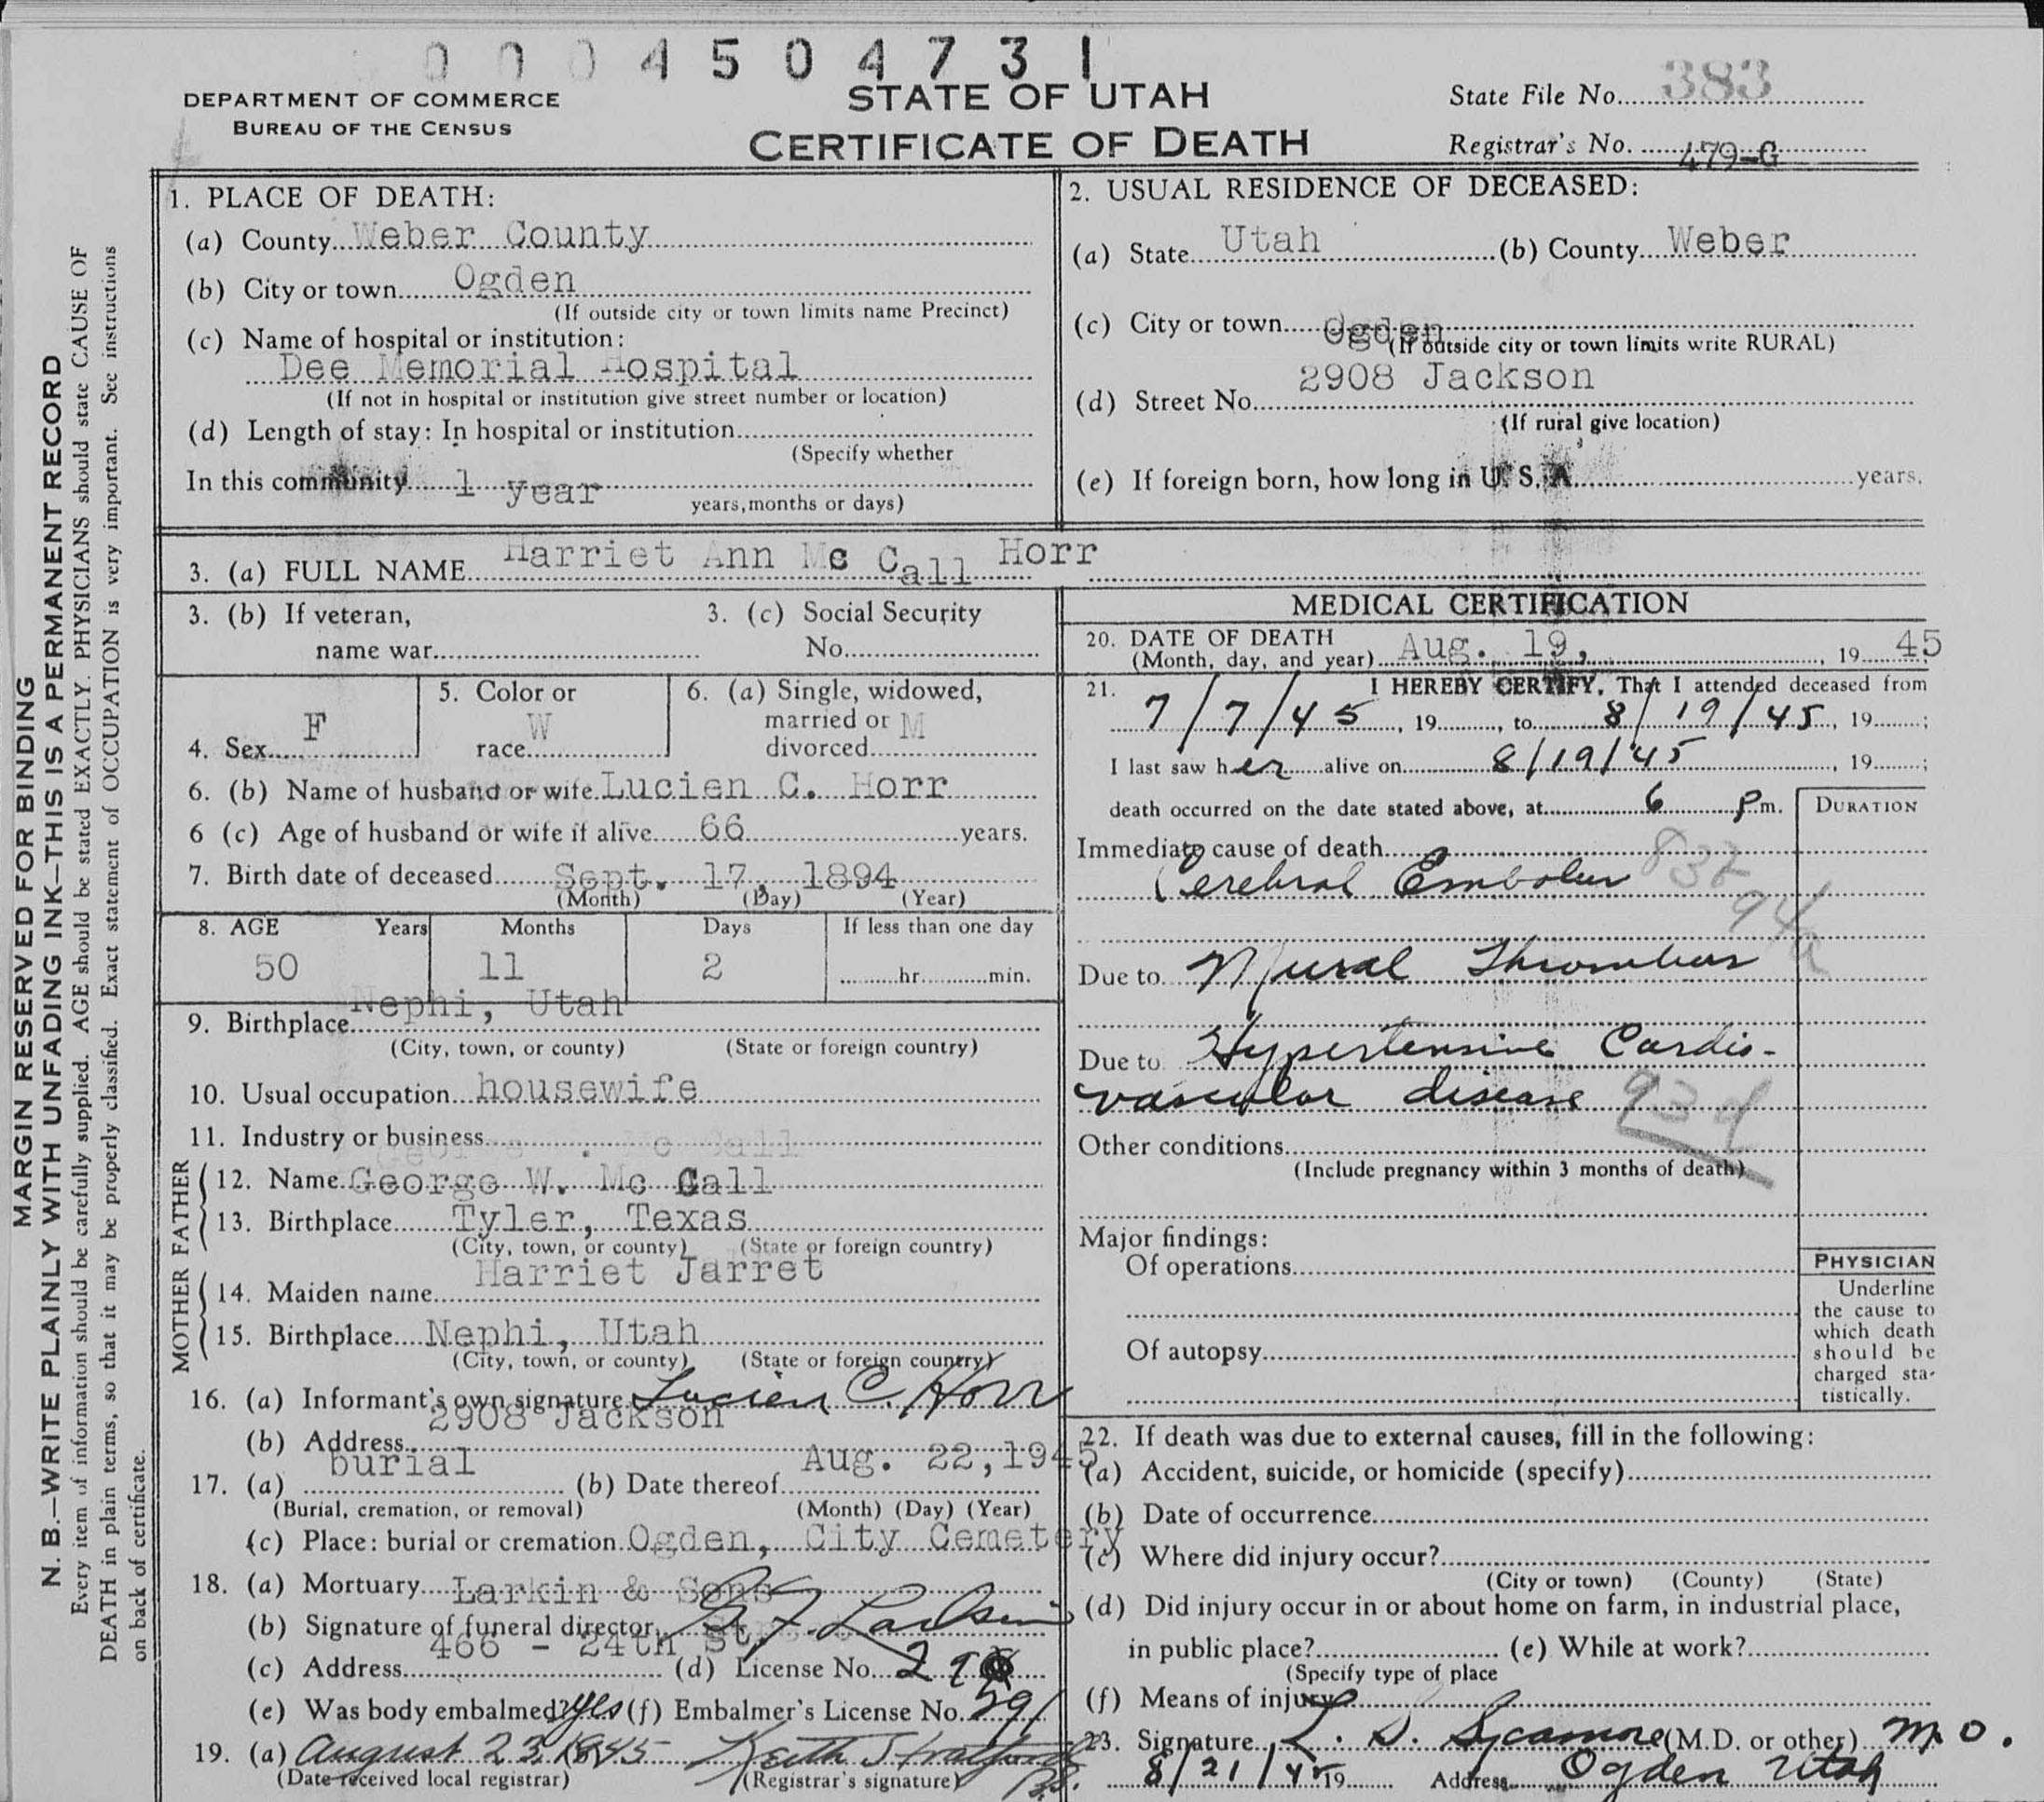 0 0 0 4 5 0 4 7 3 1
DEPARTMENT OF COMMERCE
BUREAU OF THE CENSUS
STATE OF UTAH
CERTIFICATE OF DEATH
State File No. 383
Registrar's No. 479-G
MARGIN RESERVED FOR BINDING
N. B.—WRITE PLAINLY WITH UNFADING INK—THIS IS A PERMANENT RECORD
Every item of information should be carefully supplied. AGE should be stated EXACTLY. PHYSICIANS should state CAUSE OF
DEATH in plain terms, so that it may be properly classified. Exact statement of OCCUPATION is very important. See instructions
on back of certificate.
1. PLACE OF DEATH:
(a) County Weber County
(b) City or town Ogden
(If outside city or town limits name Precinct)
(c) Name of hospital or institution:
Dee Memorial Hospital
(If not in hospital or institution give street number or location)
(d) Length of stay: In hospital or institution
(Specify whether
In this community 1 year
years, months or days)
2. USUAL RESIDENCE OF DECEASED:
(a) State Utah (b) County Weber
(c) City or town Ogden
(If outside city or town limits write RURAL)
(d) Street No. 2908 Jackson
(If rural give location)
(e) If foreign born, how long in U. S. A. years.
3. (a) FULL NAME Harriet Ann Mc Call Horr
3. (b) If veteran,
name war
3. (c) Social Security
No.
4. Sex F
5. Color or
race W
6. (a) Single, widowed,
married or M
divorced
6. (b) Name of husband or wife Lucien C. Horr
6 (c) Age of husband or wife if alive 66 years.
7. Birth date of deceased Sept. 17, 1894
(Month) (Day) (Year)
8. AGE Years Months Days If less than one day
50 11 2 hr. min.
9. Birthplace Nephi, Utah
(City, town, or county) (State or foreign country)
10. Usual occupation housewife
11. Industry or business
FATHER
12. Name George W. Mc Call
13. Birthplace Tyler, Texas
(City, town, or county) (State or foreign country)
MOTHER
14. Maiden name Harriet Jarret
15. Birthplace Nephi, Utah
(City, town, or county) (State or foreign country)
16. (a) Informant's own signature Lucien C. Horr
(b) Address 2908 Jackson
17. (a) burial (b) Date thereof Aug. 22, 1945
(Burial, cremation, or removal) (Month) (Day) (Year)
(c) Place: burial or cremation Ogden, City Cemetery
18. (a) Mortuary Larkin & Sons
(b) Signature of funeral director
(c) Address 466 - 24th St. (d) License No.
(e) Was body embalmed? yes (f) Embalmer's License No. 391
19. (a) August 23, 1945 Keith Stratford
(Date received local registrar) (Registrar's signature)
MEDICAL CERTIFICATION
20. DATE OF DEATH
(Month, day, and year) Aug. 19, 19 45
21. I HEREBY CERTIFY, That I attended deceased from
7/7/45, 19 , to 8/19/45, 19 ;
I last saw her alive on 8/19/45, 19 ;
death occurred on the date stated above, at 6 P.m.
DURATION
Immediate cause of death
Cerebral Embolus
94a
Due to Mural Thrombus
Due to Hypertensive Cardio-
vascular disease 93d
Other conditions
(Include pregnancy within 3 months of death)
Major findings:
Of operations
Of autopsy
PHYSICIAN
Underline
the cause to
which death
should be
charged sta-
tistically.
22. If death was due to external causes, fill in the following:
(a) Accident, suicide, or homicide (specify)
(b) Date of occurrence
(c) Where did injury occur?
(City or town) (County) (State)
(d) Did injury occur in or about home on farm, in industrial place,
in public place? (e) While at work?
(Specify type of place
(f) Means of injury
23. Signature L. S. Sycamore (M.D. or other) M.D.
8/21/45 19 Address Ogden Utah